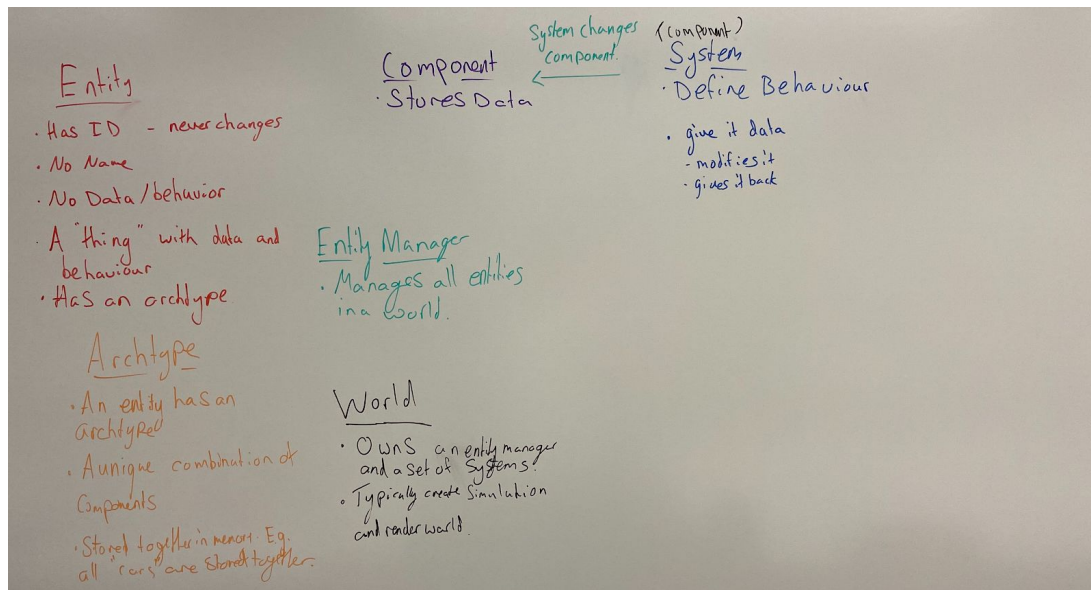 Entity
· Has ID - never changes
· No Name
· No Data/behavior
· A "thing" with data and
behaviour
· Has an archtype
Archtype
· An entity has an
archtype
· A unique combination of
Components
· Stored together in memory. E.g.
all "cars" are stored together.
Component
· Stores Data
System changes
component.
Entity Manager
· Manages all entities
in a world.
World
· Owns an entity manager
and a set of Systems.
· Typically create Simulation
and render world.
(component)
System
· Define Behaviour
· give it data
- modifies it
- gives it back